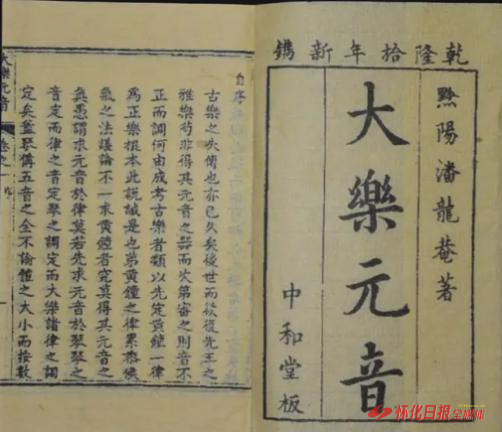 乾隆拾年新鐫
黔陽潘龍菴著
大樂元音
中和堂板
自序
古樂之失傳也亦已久矣後世而欲復先王之
雅樂苟非得其元音之器而次第審之則音不
正而調何由成考古樂者類以先定黃鐘一律
為正樂根本此說誠是也第黃鐘之律累黍候
氣之法議論不一求黃鐘者究莫得其元音之
真愚謂求元音於律莫若先求元音於琴琴之
音定而律之音定琴之調定而大樂諸律之調
定矣蓋琴備五音之全不論體之大小而按數
大樂元音
卷之一
怀化日报全媒体